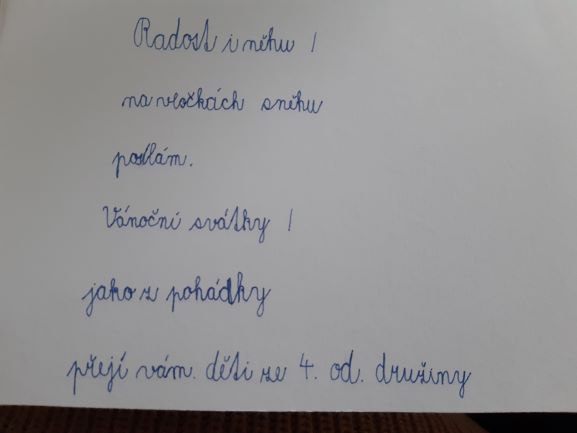 Radost i něhu /
na vločkách sněhu
posílám.
Vánoční svátky /
jako z pohádky
přejí vám. děti ze 4. od. družiny